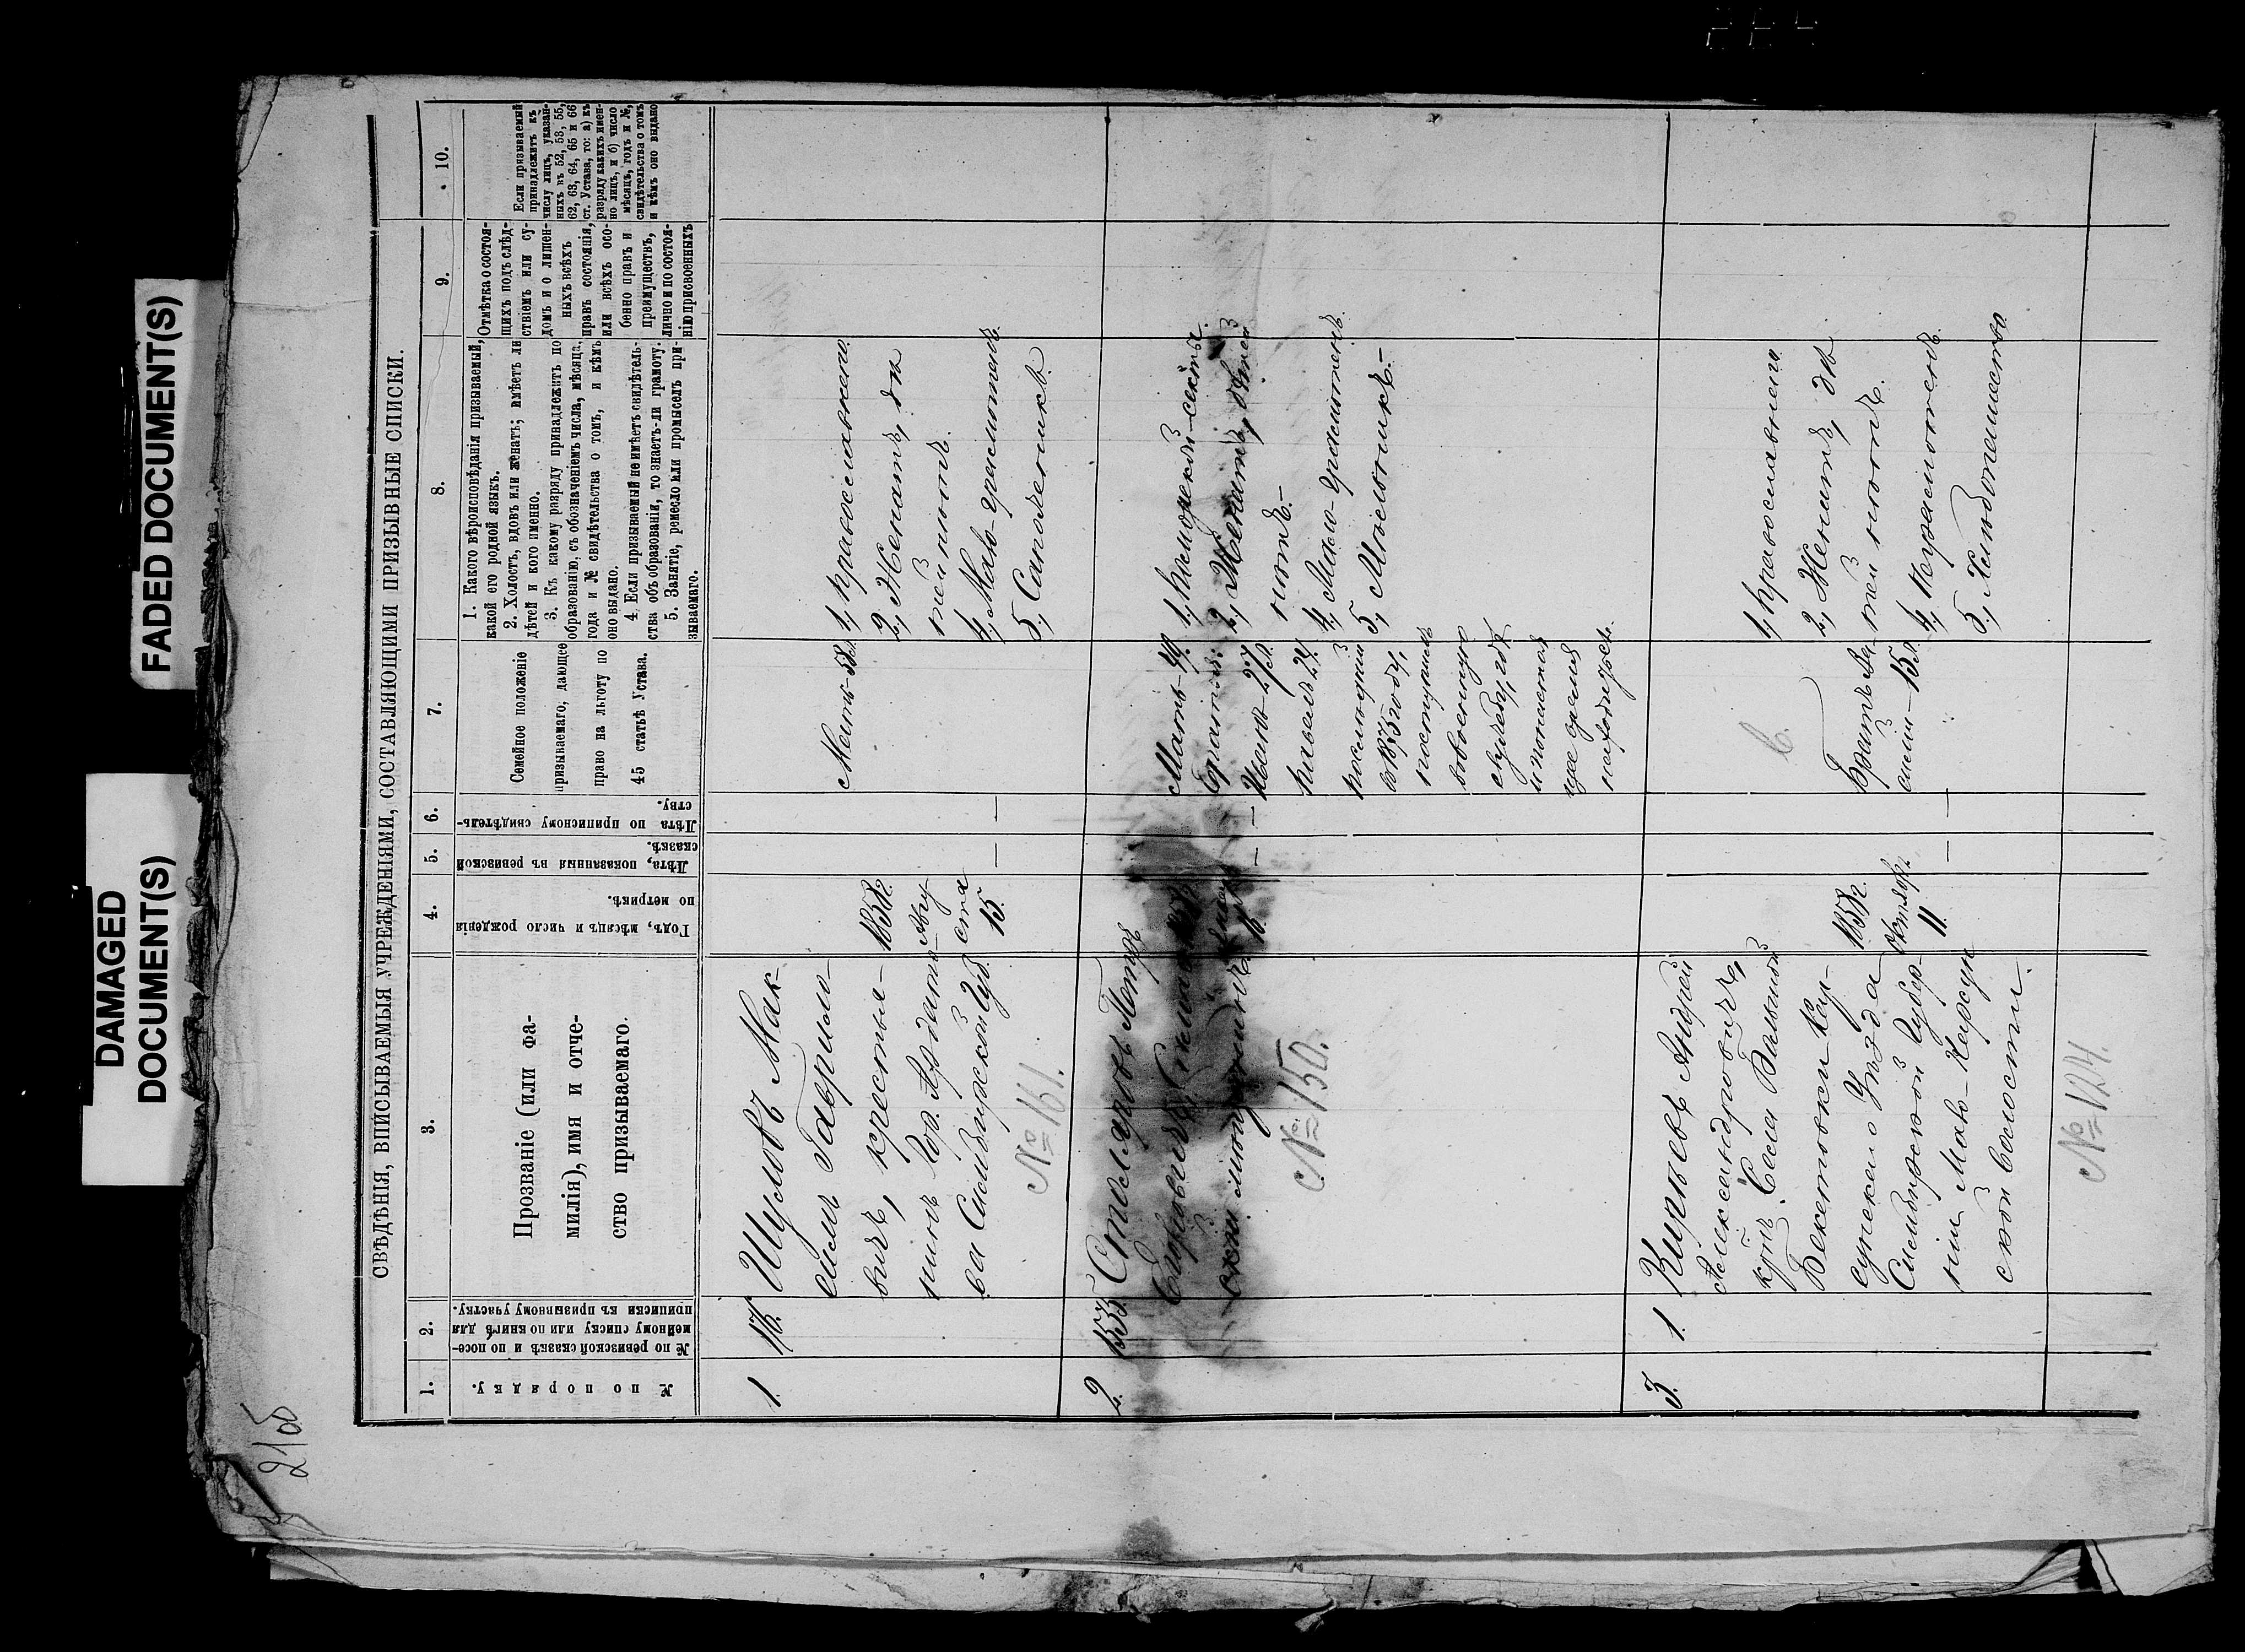 DAMAGED
DOCUMENT(S)
FADED DOCUMENT(S)
21об
СВѢДѢНІЯ, ВПИСЫВАЕМЫЯ УЧРЕЖДЕНІЯМИ, СОСТАВЛЯЮЩИМИ ПРИЗЫВНЫЕ СПИСКИ.
1.
2.
3.
4.
5.
6.
7.
8.
9.
10.
№ по порядку.
№ по ревизской сказкѣ и по посе-
мейному списку или по книгѣ для
приписки къ призывному участку.
Прозваніе (или фа-
милія), имя и отче-
ство призываемаго.
Годъ, мѣсяцъ и число рожденія
по метрикѣ.
Лѣта, показанныя въ ревизской
сказкѣ.
Лѣта по приписному свидѣтель-
ству.
Семейное положеніе
призываемаго, дающее
право на льготу по
45 статьѣ Устава.
1. Какого вѣроисповѣданія призываемый,
какой его родной языкъ.
2. Холостъ, вдовъ или женатъ; имѣетъ ли
дѣтей и кого именно.
3. Къ какому разряду принадлежитъ по
образованію, съ обозначеніемъ числа, мѣсяца,
года и № свидѣтельства о томъ, и кѣмъ
оно выдано.
4. Если призываемый не имѣетъ свидѣтель-
ства объ образованіи, то знаетъ-ли грамоту.
5. Занятіе, ремесло или промыселъ при-
зываемаго.
Отмѣтка о состоя-
щихъ подъ слѣд-
ствіемъ или су-
домъ и о лишен-
ныхъ всѣхъ
правъ состоянія,
или всѣхъ осо-
бенно правъ и
преимуществъ,
лично и по состоя-
нію присвоенныхъ
Если призываемый
принадлежитъ къ
числу лицъ, указан-
ныхъ въ 52, 53, 55,
62, 63, 64, 65 и 66
ст. Устава, то: а) къ
разряду какихъ имен-
но лицъ, и б) число
мѣсяцъ, годъ и №,
свидѣтельства о томъ
и кѣмъ оно выдано
1.
176.
Шуловъ Мак-
симъ Гаврило-
вичъ, крестья-
нинъ Гор. Ардато-
ва Симбирской Губ.
№ 161.
1858г.
Авгу-
ста
15.
—
—
Мать 58 л.
1, Православнаго.
2, Женатъ, дѣ
тей нѣтъ.
4, Мало-грамотенъ.
5, Сапожникъ.
2.
Столяровъ Петръ
№ 150.
—
—
Мать 49.
братья:
Иванъ 27 л.
послѣдній
въ 1875 году,
поступилъ
въ военную
службу, гдѣ
1, Поморской-секты.
2, Женатъ, дѣтей
нѣтъ.-
4, Мало-грамотенъ.
5,
3.
1.
Кирѣевъ Андрей
Александровичъ,
Села Вальшой
Бекетовки Кар-
сунскаго Уѣзда
Симбирской Губер-
ніи Мало-Карсун
ской волости.
№ 124.
1858г.
Октября
11.
—
—
Братъ Ва
силій-15 л.
1, Православнаго.
2, Женатъ, дѣ
тей нѣтъ.
4, Неграмотенъ.
5, Хлѣбопашество.